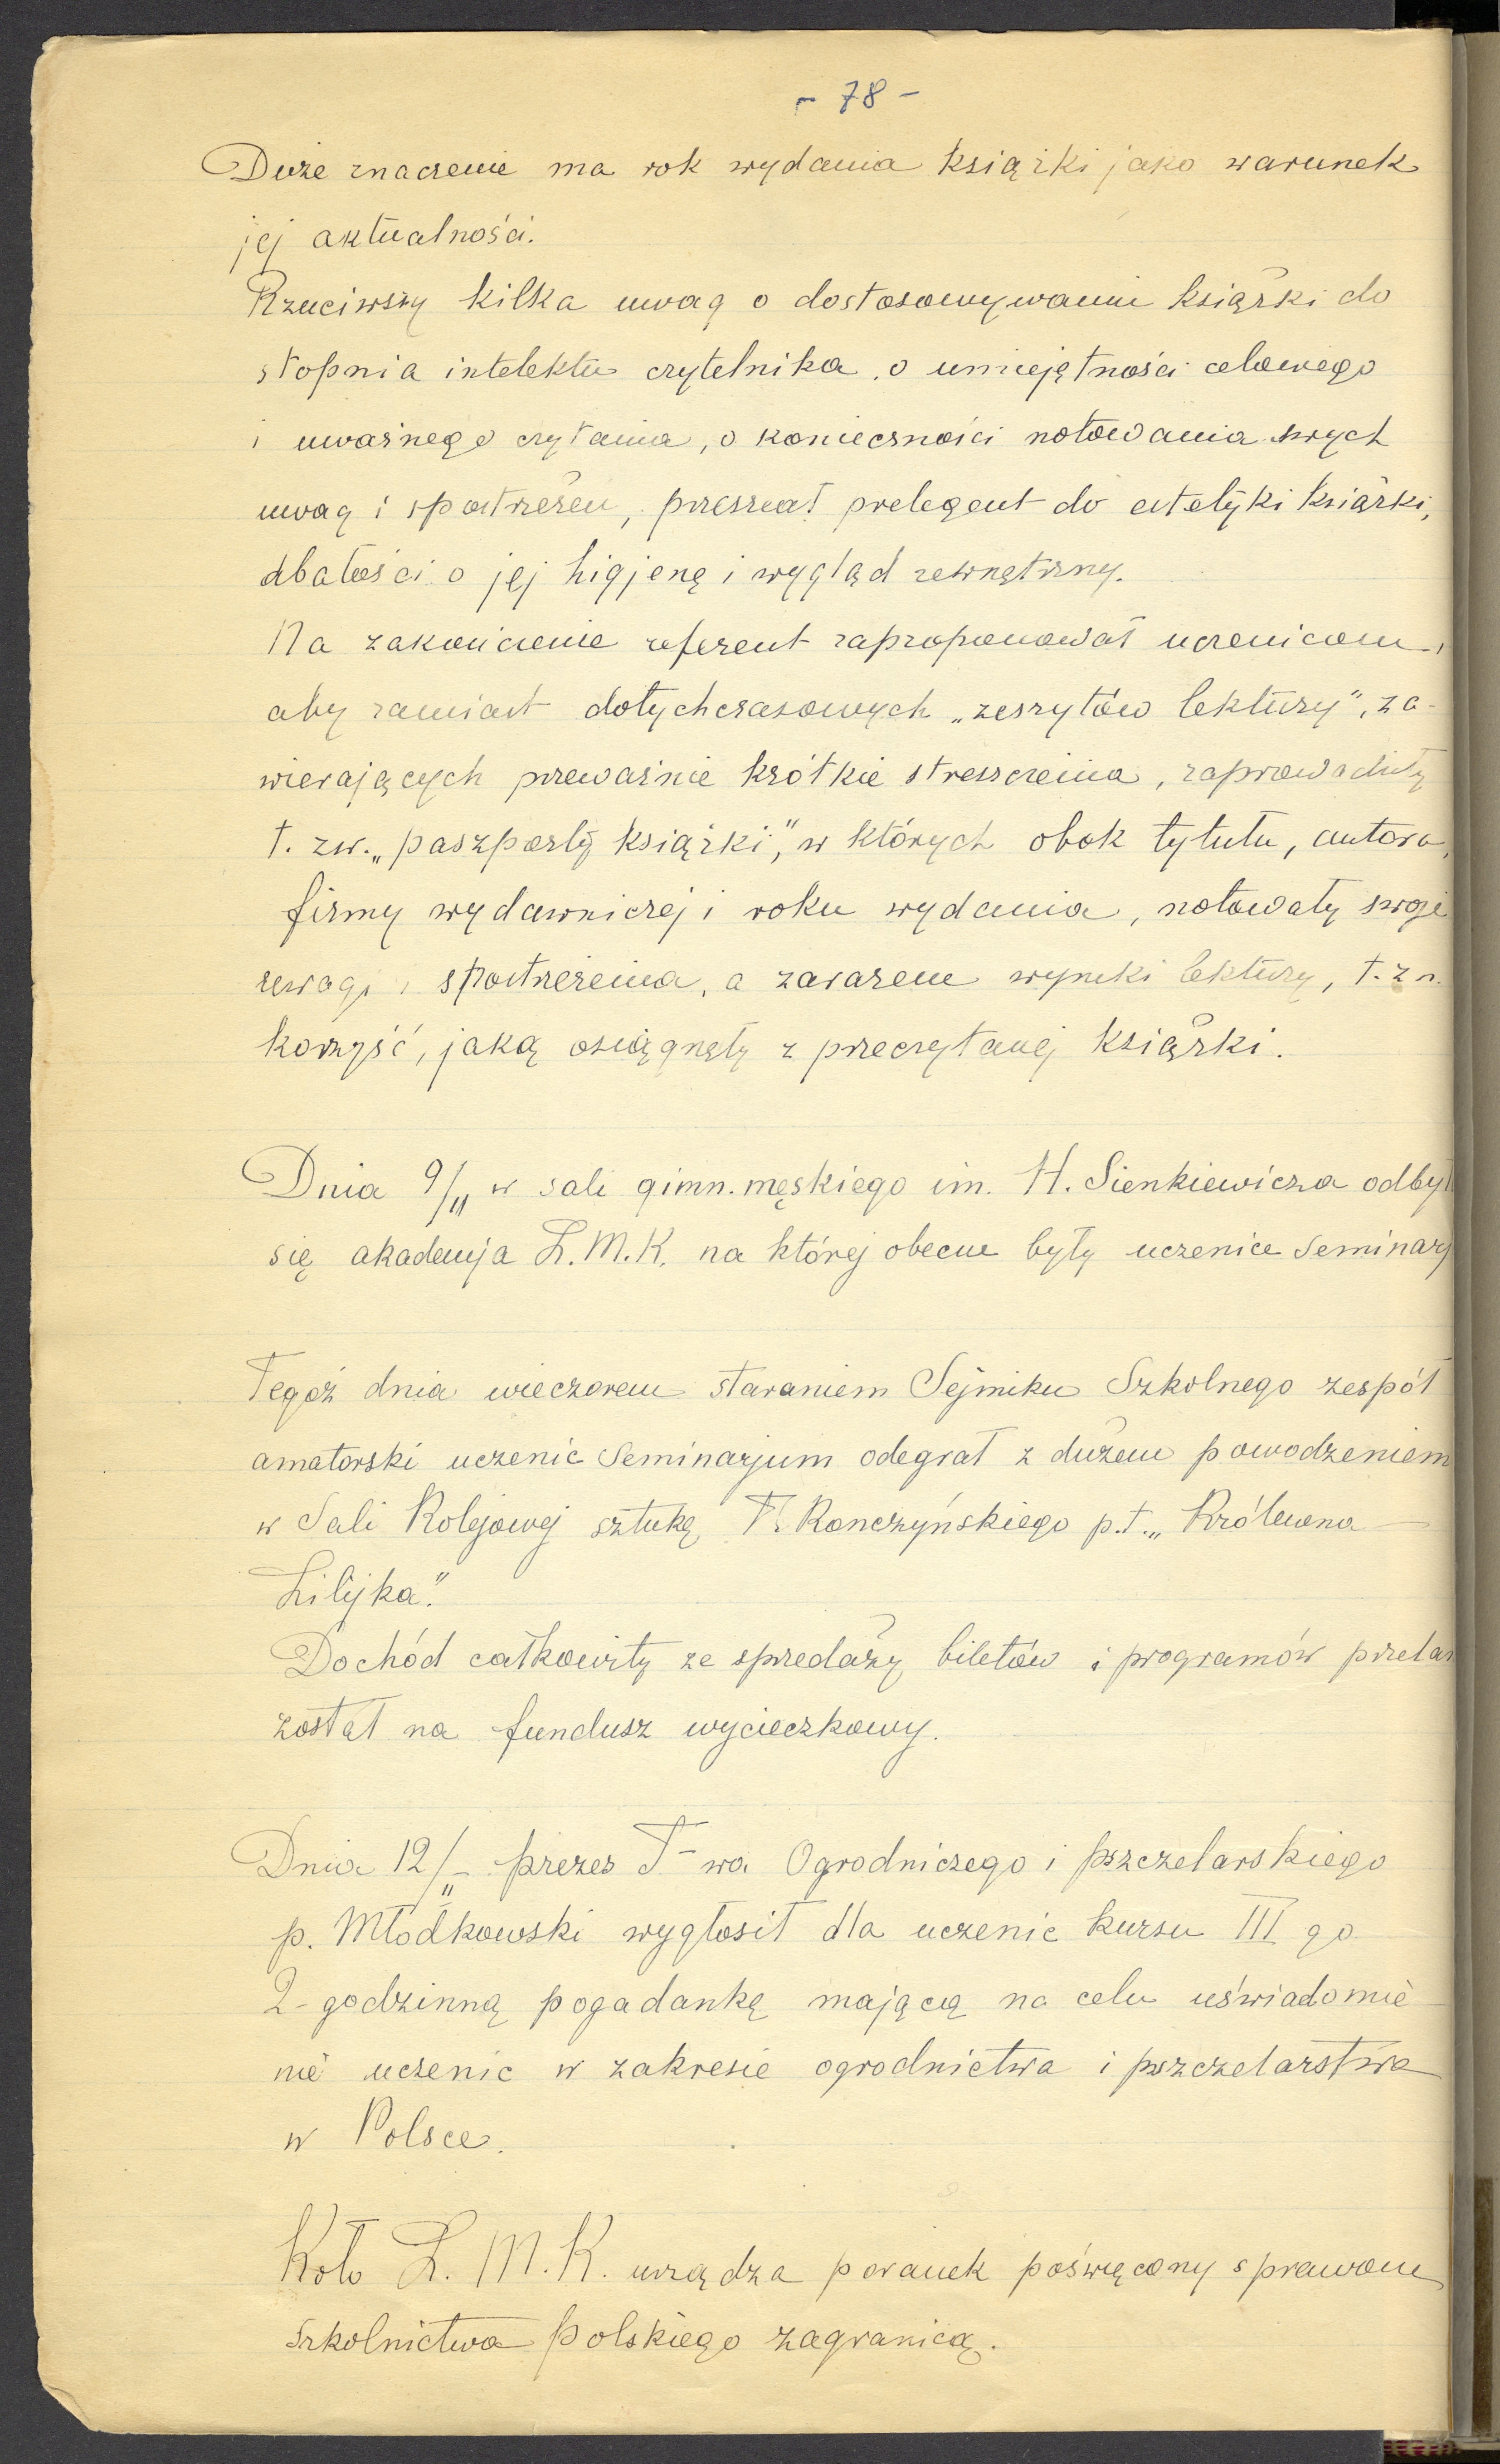 - 78 -
Duże znaczenie ma rok wydania książki jako warunek
jej aktualności.
Rzuciwszy kilka uwag o dostosowywaniu książki do
stopnia intelektu czytelnika, o umiejętności celowego
i uważnego czytania, o konieczności notowania swych
uwag i spostrzeżeń, przeszedł prelegent do estetyki książki,
dbałości o jej higjenę i wygląd zewnętrzny.
Na zakończenie referent zaproponował uczenicom,
aby zamiast dotychczasowych „zeszytów lektury", za-
wierających przeważnie krótkie streszczenia, zaprowadziły
t. zw. „paszporty książki", w których obok tytułu, autora,
firmy wydawniczej i roku wydania, notowały swoje
uwagi i spostrzeżenia, a zarazem wyniki lektury, t. zn.
korzyść, jaką osiągnęły z przeczytanej książki.
Dnia 9/II w sali gimn. męskiego im. H. Sienkiewicza odbył
się akademja L.M.K. na której obecne były uczenice Seminarj
Tegoż dnia wieczorem staraniem Sejmiku Szkolnego zespół
amatorski uczenic Seminarjum odegrał z dużem powodzeniem
w Sali Kolejowej sztukę T. Konczyńskiego p.t. „Królewna
Lilijka".
Dochód całkowity ze spredaży biletów i programów przelan
został na fundusz wycieczkowy.
Dnia 12/II prezes T-wa Ogrodniczego i pszczelarskiego
p. Młodkowski wygłosił dla uczenic kursu III go
2-godzinną pogadankę mającą na celu uświadomie-
nie uczenic w zakresie ogrodnictwa i pszczelarstwa
w Polsce.
Koło L.M.K. urządza poranek poświęcony sprawom
szkolnictwa polskiego zagranicą.